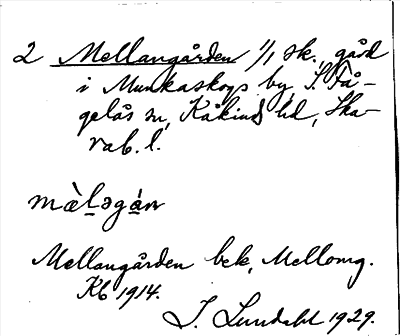 2 Mellangården 1/1 sk. gård
i Munkaskogs by, S. Få-
gelås sn, Kåkinds hd, Ska-
rab. l.
màl̠əgá̠ɳ
Mellangården bek, Mellomg.
Kb 1914.
J. Lundahl 1929.